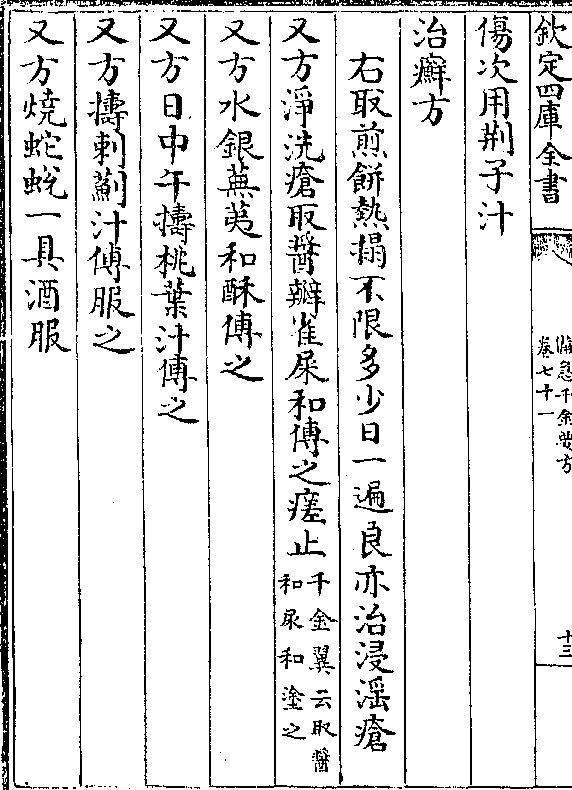 欽定四庫全書
備急千金要方
卷七十一
十三
傷次用荆子汁
治癬方
右取煎餅熱搨不限多少日一遍良亦治浸淫瘡
又方淨洗瘡取醬瓣雀屎和傅之瘥止千金翼云取醬
和尿和塗之
又方水銀蕪荑和酥傅之
又方日中午擣桃葉汁傅之
又方擣刺薊汁傅服之
又方燒蛇蛻一具酒服